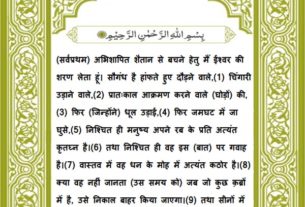 بِسْمِ اللهِ الرَّحْمٰنِ الرَّحِيْمِ
(सर्वप्रथम) अभिशापित शैतान से बचने हेतु मैं ईश्वर की
शरण लेता हूं। सौगंध है हांफते हुए दौड़ने वाले,(1) चिंगारी
उड़ाने वाले,(2) प्रातःकाल आक्रमण करने वाले (घोड़ों) की,
(3) फिर (जिन्होंने) धूल उड़ाई,(4) फिर जमघट में जा
घुसे,(5) निश्चित ही मनुष्य अपने रब के प्रति अत्यंत
कृतघ्न है।(6) तथा निश्चित ही वह इस (बात) पर गवाह
है।(7) वास्तव में वह धन के मोह में अत्यंत कठोर है।(8)
क्या वह नहीं जानता (उस समय को) जब जो कुछ क़ब्रों
में है, उसे निकाल बाहर किया जाएगा।(9) तथा सीनों में